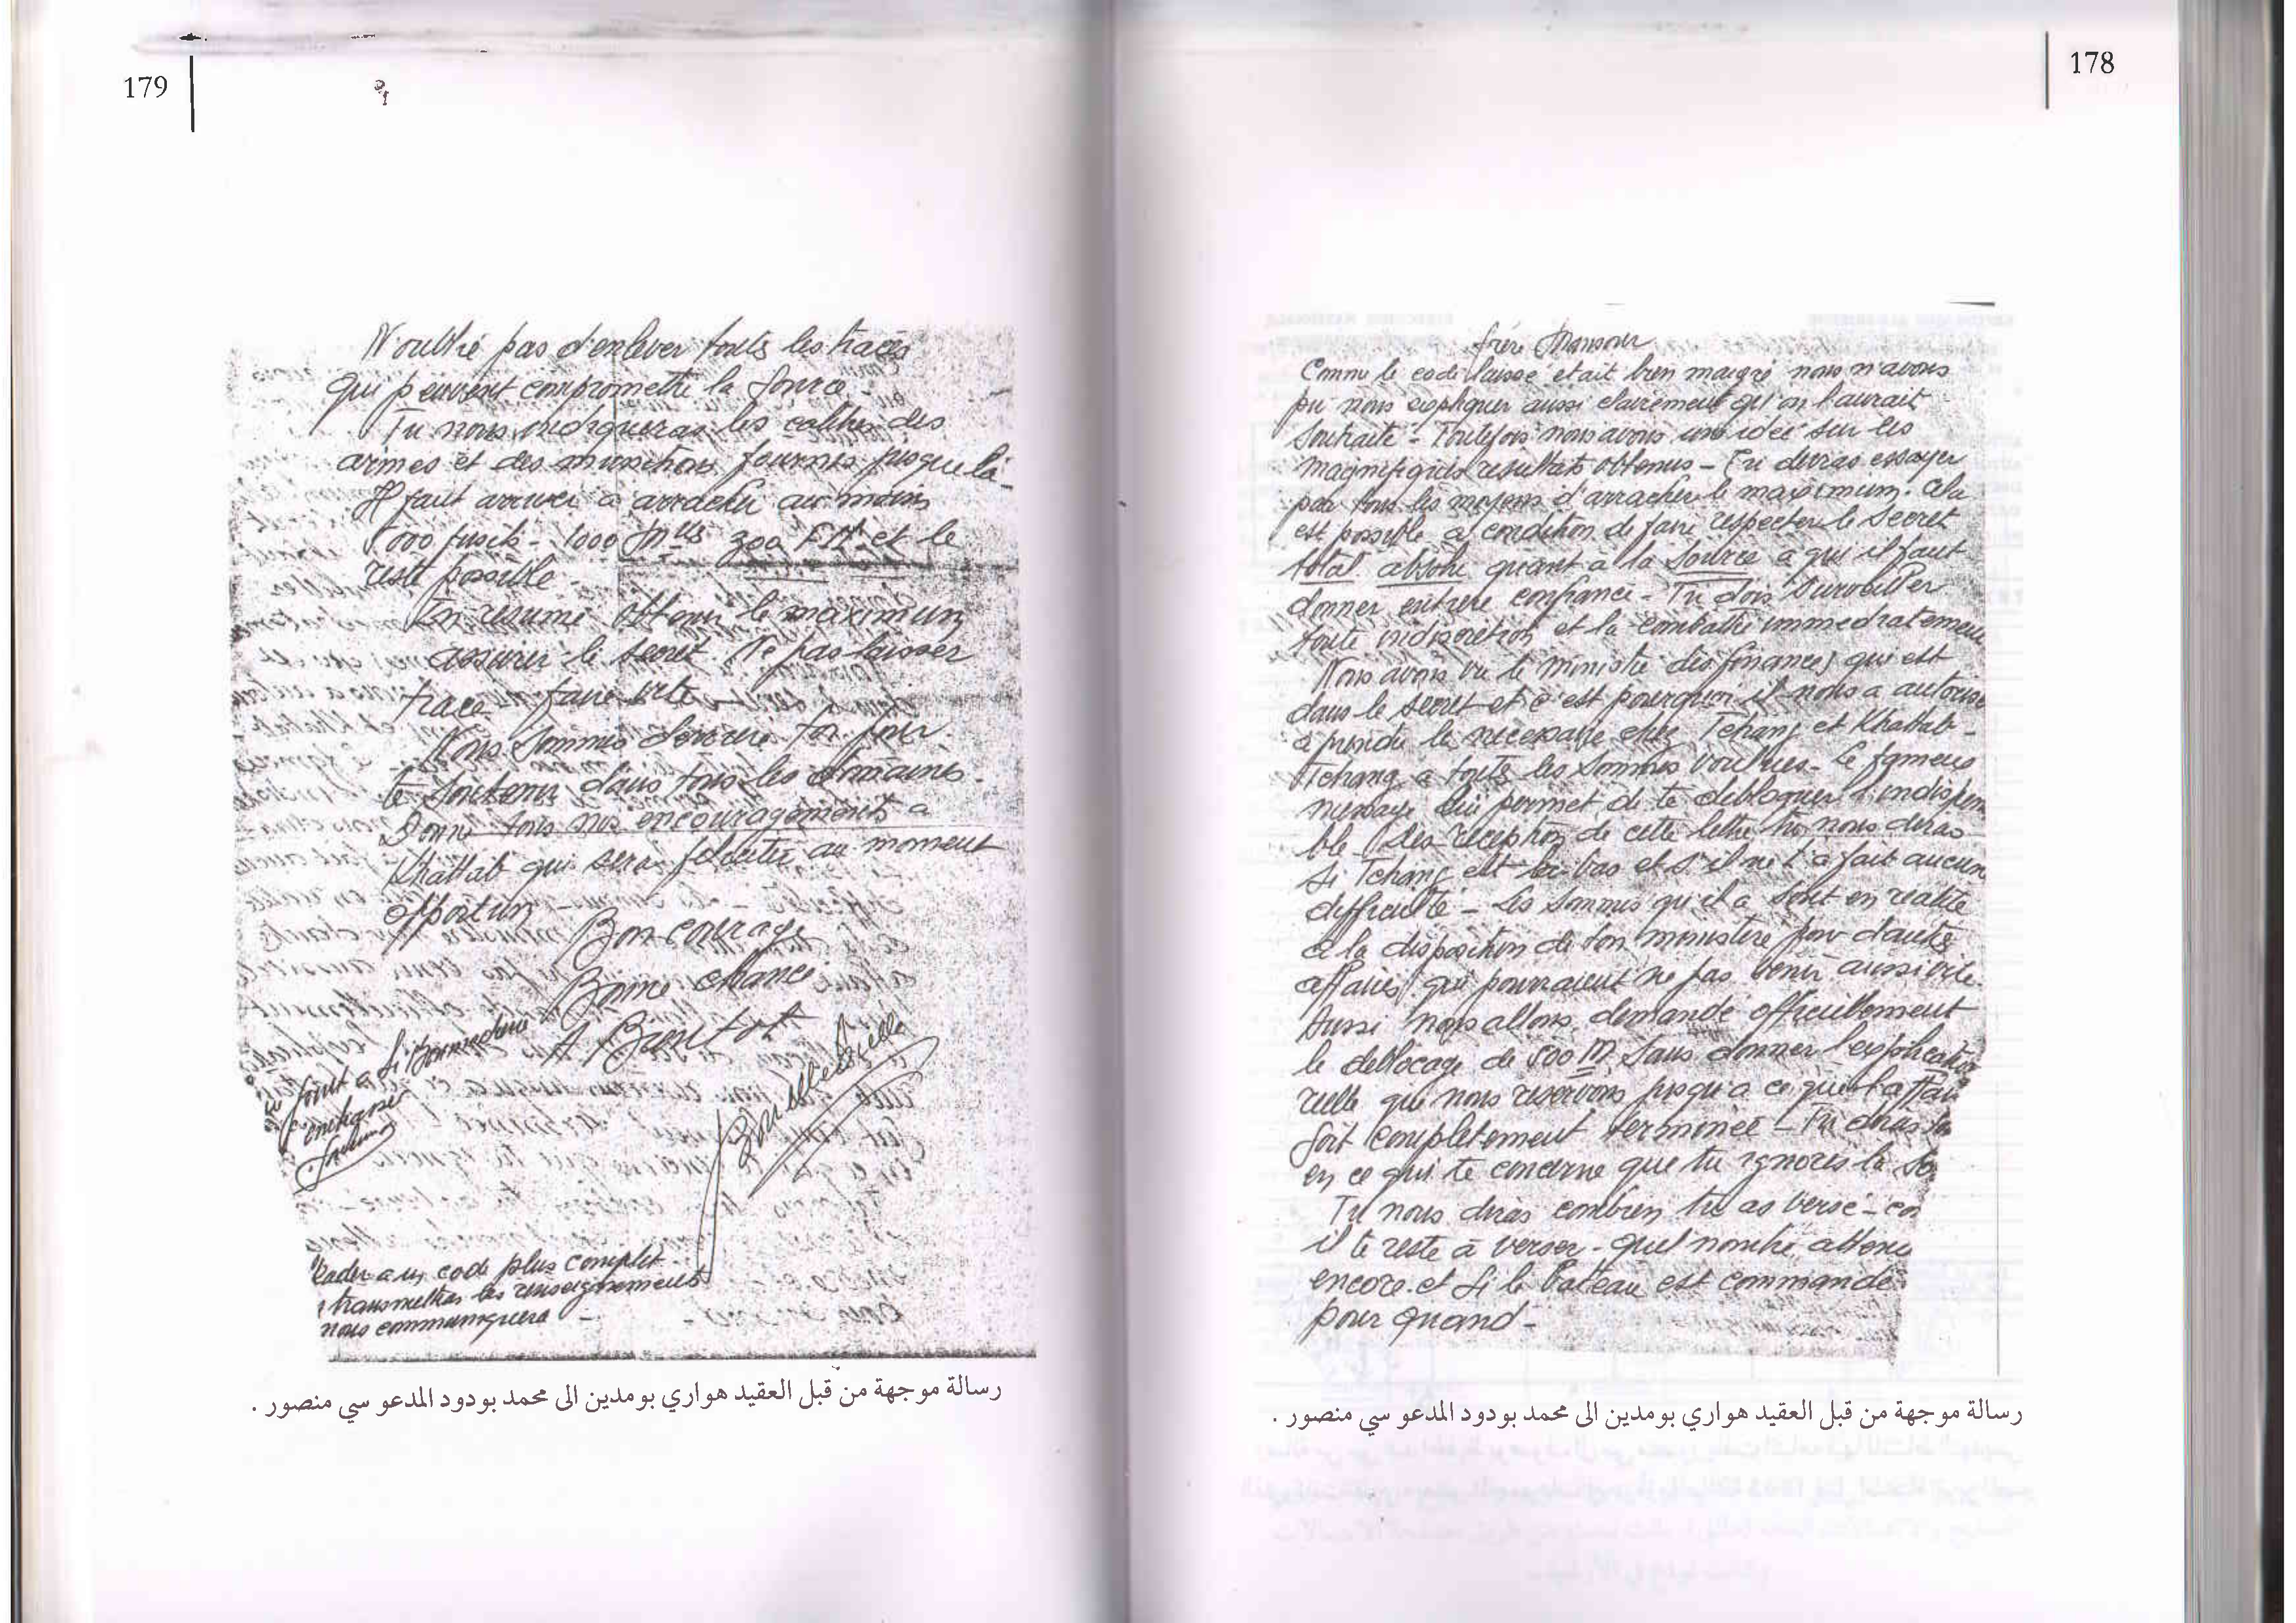 178
frère Mansour
Comme le code laissé etait bien maigre nous n'avons
pu nous expliquer aussi clairement qu'on l'aurait
souhaité - Toutefois nous avons une idée sur les
magnifiques resultats obtenus - Tu devras essayer
par tous les moyens d'arracher le maximum. Cela
est possible à condition de faire respecter le secret
total absolu quant à la source à qui il faut
donner entière confiance - Tu dois surveiller
toute indiscretion et la combattre immediatement
Nous avons vu le ministre des finances qui est
dans le secret et c'est pourquoi il nous a autorisé
à prendre le necessaire chez Tchang et Khattab -
Tchang a toutes les sommes voulues - Le fameux
message lui permet de te debloquer l'indispen
ble - Des reception de cette lettre tu nous diras
si Tchang est la-bas et s'il ne t'a fait aucun
difficulté - Les sommes qu'il a sont en réalité
à la disposition de ton ministère pour d'autres
affaires qui pourraient ne pas venir aussi vite.
Aussi nous allons demandé officiellement
le deblocage de 500 M sans donner l'explication
reelle que nous reservons jusqu'a ce que l'affai
soit completement terminée - Tu diras
en ce qui te concerne que tu ignores la
Tu nous diras combien tu as versé - co
il te reste à verser - quel nombre attenu
encore et si le bateau est commandé
pour quand -
رسالة موجهة من قبل العقيد هواري بومدين الى محمد بودود المدعو سي منصور .
179
N'oublié pas d'enlever touts les traces
qui peuvent compromettre la source -
Tu nous indiqueras les calibres des
armes et des munitions fournis jusque là -
Il faut arriver à arracher au moins
000 fusils - 1000 Mtts 300 FM et le
reste possible -
En resumé obtenir le maximum
assurer le secret. Ne pas laisser
trace faire vite -
Nous sommes derrière toi pour
te soutenir dans tous les domaines -
Donne tous nos encouragements à
Khattab qui sera felicité au moment
opportun
Bon courage
Bonne chance
A Bientot
joint a Si Boumediene
code plus complet
transmettras les renseignements
nous communiquera -
رسالة موجهة من قبل العقيد هواري بومدين الى محمد بودود المدعو سي منصور .